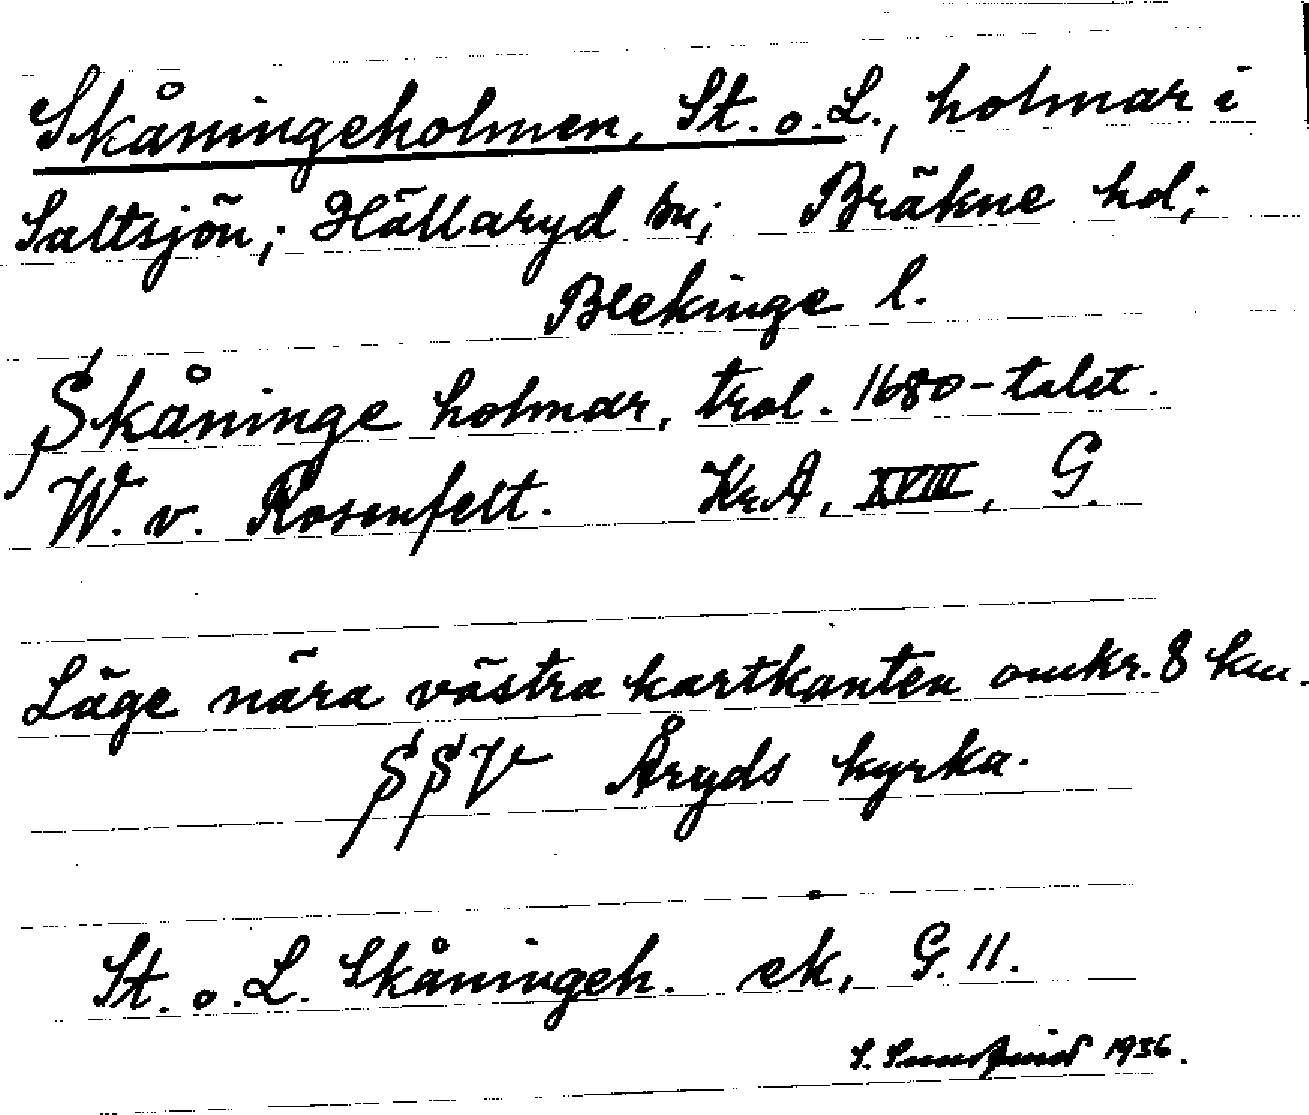 Skåningeholmen, St. o. L., holmar i
Saltsjön; Hällaryd sn; Bräkne hd;
Blekinge l.
Skåninge holmar, trol. 1680-talet.
W. v. Rosenfelt. KrA, XVIII, G.
Läge nära västra kartkanten omkr. 8 km.
SSV Åryds kyrka.
St. o. L. Skåningeh. ek, G. 11.
S. Sundquist 1936.